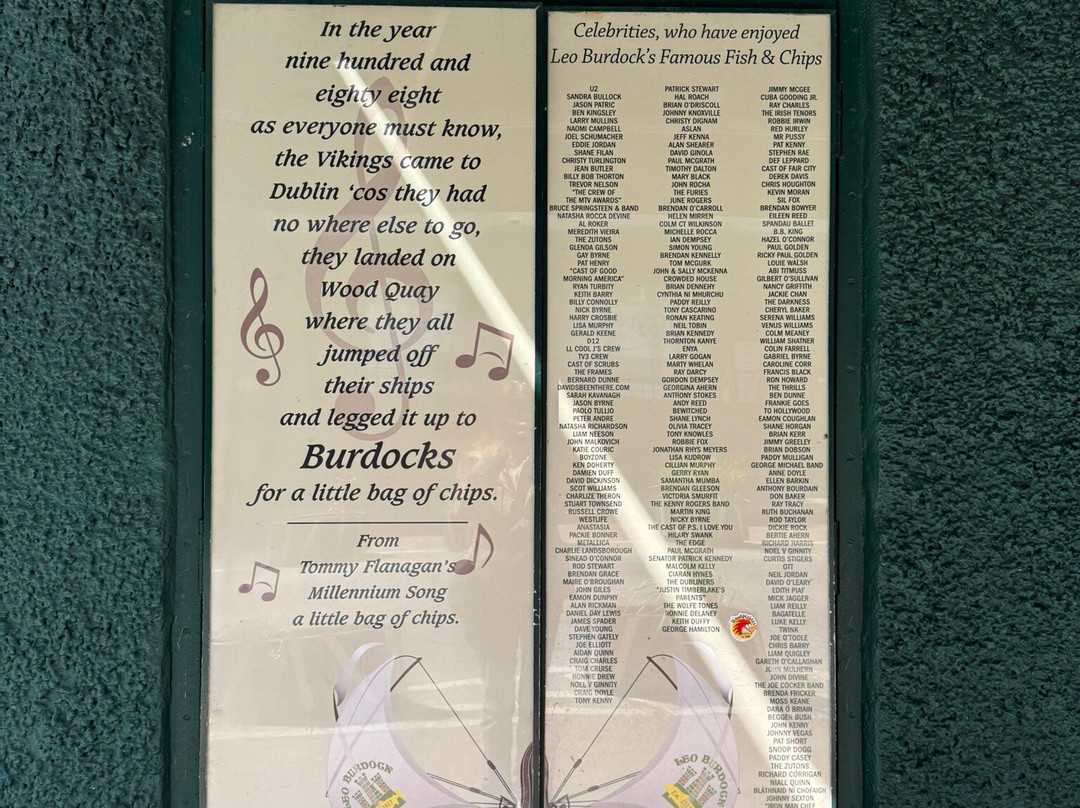 In the year
nine hundred and
eighty eight
as everyone must know,
the Vikings came to
Dublin ‘cos they had
no where else to go,
they landed on
Wood Quay
where they all
jumped off
their ships
and legged it up to
Burdocks
for a little bag of chips.
From
Tommy Flanagan's
Millennium Song
a little bag of chips.
LEO BURDOCK
Celebrities, who have enjoyed
Leo Burdock's Famous Fish & Chips
U2
SANDRA BULLOCK
JASON PATRIC
BEN KINGSLEY
LARRY MULLINS
NAOMI CAMPBELL
JOEL SCHUMACHER
EDDIE JORDAN
SHANE FILAN
CHRISTY TURLINGTON
JEAN BUTLER
BILLY BOB THORTON
TREVOR NELSON
"THE CREW OF
THE MTV AWARDS"
BRUCE SPRINGSTEEN & BAND
NATASHA ROCCA DEVINE
AL ROKER
MEREDITH VIEIRA
THE ZUTONS
GLENDA GILSON
GAY BYRNE
PAT HENRY
"CAST OF GOOD
MORNING AMERICA"
RYAN TURBITY
KEITH BARRY
BILLY CONNOLLY
NICK BYRNE
HARRY CROSBIE
LISA MURPHY
GERALD KEENE
D12
LL COOL J'S CREW
TV3 CREW
CAST OF SCRUBS
THE FRAMES
BERNARD DUNNE
DAVIDSBEENTHERE.COM
SARAH KAVANAGH
JASON BYRNE
PAOLO TULLIO
PETER ANDRE
NATASHA RICHARDSON
LIAM NEESON
JOHN MALKOVICH
KATIE COURIC
BOYZONE
KEN DOHERTY
DAMIEN DUFF
DAVID DICKINSON
SCOT WILLIAMS
CHARLIZE THERON
STUART TOWNSEND
RUSSELL CROWE
WESTLIFE
ANASTASIA
PACKIE BONNER
METALLICA
CHARLIE LANDSBOROUGH
SINEAD O'CONNOR
ROD STEWART
BRENDAN GRACE
MAIRE O'BROUGHAN
JOHN GILES
EAMON DUNPHY
ALAN RICKMAN
DANIEL DAY LEWIS
JAMES SPADER
DAVE YOUNG
STEPHEN GATELY
JOE ELLIOTT
AIDAN QUINN
CRAIG CHARLES
TOM CRUISE
RONNIE DREW
NOEL V GINNITY
CRAIG DOYLE
TONY KENNY
PATRICK STEWART
HAL ROACH
BRIAN O'DRISCOLL
JOHNNY KNOXVILLE
CHRISTY DIGNAM
ASLAN
JEFF KENNA
ALAN SHEARER
DAVID GINOLA
PAUL MCGRATH
TIMOTHY DALTON
MARY BLACK
JOHN ROCHA
THE FURIES
JUNE ROGERS
BRENDAN O'CARROLL
HELEN MIRREN
COLM CT WILKINSON
MICHELLE ROCCA
IAN DEMPSEY
SIMON YOUNG
BRENDAN KENNELLY
TOM MCGURK
JOHN & SALLY MCKENNA
CROWDED HOUSE
BRIAN DENNEHY
CYNTHIA NI MHURCHU
PADDY REILLY
TONY CASCARINO
RONAN KEATING
NEIL TOBIN
BRIAN KENNEDY
THORNTON KANYE
ENYA
LARRY GOGAN
MARTY WHELAN
RAY DARCY
GORDON DEMPSEY
GEORGINA AHERN
ANTHONY STOKES
ANDY REED
BEWITCHED
SHANE LYNCH
OLIVIA TRACEY
TONY KNOWLES
ROBBIE FOX
JONATHAN RHYS MEYERS
LISA KUDROW
CILLIAN MURPHY
GERRY RYAN
SAMANTHA MUMBA
BRENDAN GLEESON
VICTORIA SMURFIT
THE KENNY ROGERS BAND
MARTIN KING
NICKY BYRNE
THE CAST OF P.S. I LOVE YOU
HILARY SWANK
THE EDGE
PAUL MCGRATH
SENATOR PATRICK KENNEDY
MALCOLM KELLY
CIARAN HYNES
THE DUBLINERS
"JUSTIN TIMBERLAKE'S
PARENTS"
THE WOLFE TONES
RONNIE DELANEY
KEITH DUFFY
GEORGE HAMILTON
JIMMY MCGEE
CUBA GOODING JR.
RAY CHARLES
THE IRISH TENORS
ROBBIE IRWIN
RED HURLEY
MR PUSSY
PAT KENNY
STEPHEN RAE
DEF LEPPARD
CAST OF FAIR CITY
DEREK DAVIS
CHRIS HOUGHTON
KEVIN MORAN
SIL FOX
BRENDAN BOWYER
EILEEN REED
SPANDAU BALLET
B.B. KING
HAZEL O'CONNOR
PAUL GOLDEN
RICKY PAUL GOLDEN
LOUIE WALSH
ABI TITMUSS
GILBERT O'SULLIVAN
NANCY GRIFFITH
JACKIE CHAN
THE DARKNESS
CHERYL BAKER
SERENA WILLIAMS
VENUS WILLIAMS
COLM MEANEY
WILLIAM SHATNER
COLIN FARRELL
GABRIEL BYRNE
CAROLINE CORR
FRANCIS BLACK
RON HOWARD
THE THRILLS
BEN DUNNE
FRANKIE GOES
TO HOLLYWOOD
EAMON COUGHLAN
SHANE HORGAN
BRIAN KERR
JIMMY GREELEY
BRIAN DOBSON
PADDY MULLIGAN
GEORGE MICHAEL BAND
ANNE DOYLE
ELLEN BARKIN
ANTHONY BOURDAIN
DON BAKER
RAY TRACY
RUTH BUCHANAN
ROD TAYLOR
DICKIE ROCK
BERTIE AHERN
RICHARD HARRIS
NOEL V GINNITY
CURTIS STIGERS
OTT
NEIL JORDAN
DAVID O'LEARY
EDITH PIAF
MICK JAGGER
LIAM REILLY
BAGATELLE
LUKE KELLY
TWINK
JOE O'TOOLE
CHRIS BARRY
LIAM QUIGLEY
GARETH O'CALLAGHAN
JOHN MULHERN
JOHN DIVINE
THE JOE COCKER BAND
BRENDA FRICKER
MOSS KEANE
DARA Ó BRIAIN
BEGGER BUSH
JOHN KENNY
JOHNNY VEGAS
PAT SHORT
SNOOP DOGG
PADDY CASEY
THE ZUTONS
RICHARD CORRIGAN
NIALL QUINN
BLÁTHNAID NÍ CHOFAIGH
JOHNNY SEXTON
MAN CHEF
LEO BURDOCK